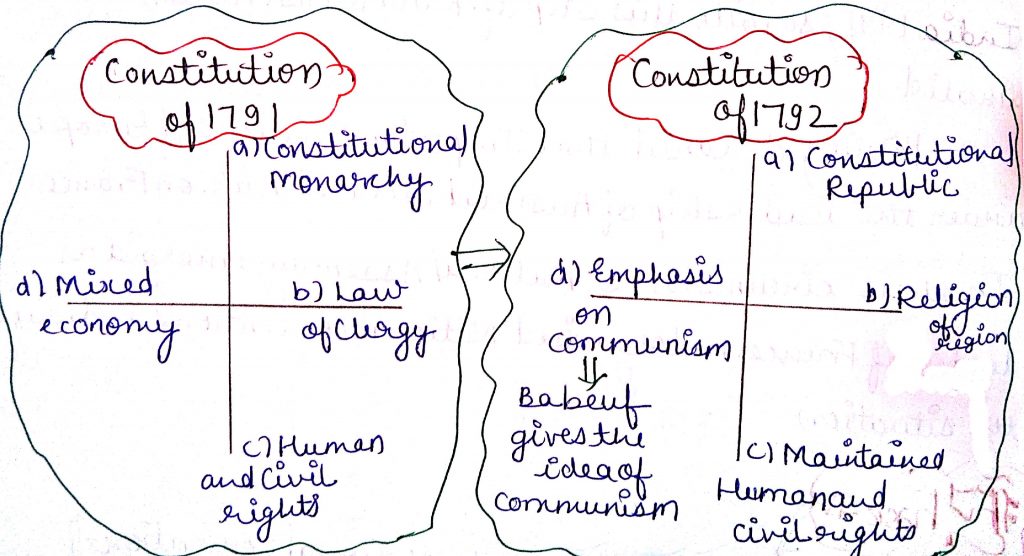 Constitution
of 1791
a) Constitutional
Monarchy
b) Law
of Clergy
c) Human
and Civil
rights
d) Mixed
economy
⇒
Constitution
of 1792
a) Constitutional
Republic
b) Religion
of
region
c) Maintained
Human and
civil rights
d) Emphasis
on
communism
⇓
Babeuf
gives the
idea of
communism